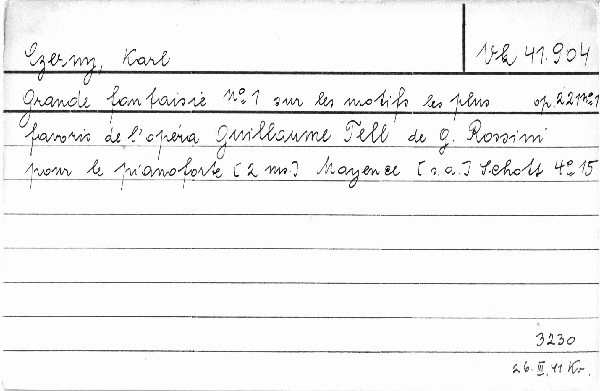 Czerny, Karl Vk 41.904
Grande fantaisie No 1 sur les motifs les plus op. 221 No 1
favoris de l'opéra Guillaume Tell de G. Rossini
pour le pianoforte [2 ms.] Mayence [s.a.] Schott 4o 15
3230
26. III. 41 Kr.